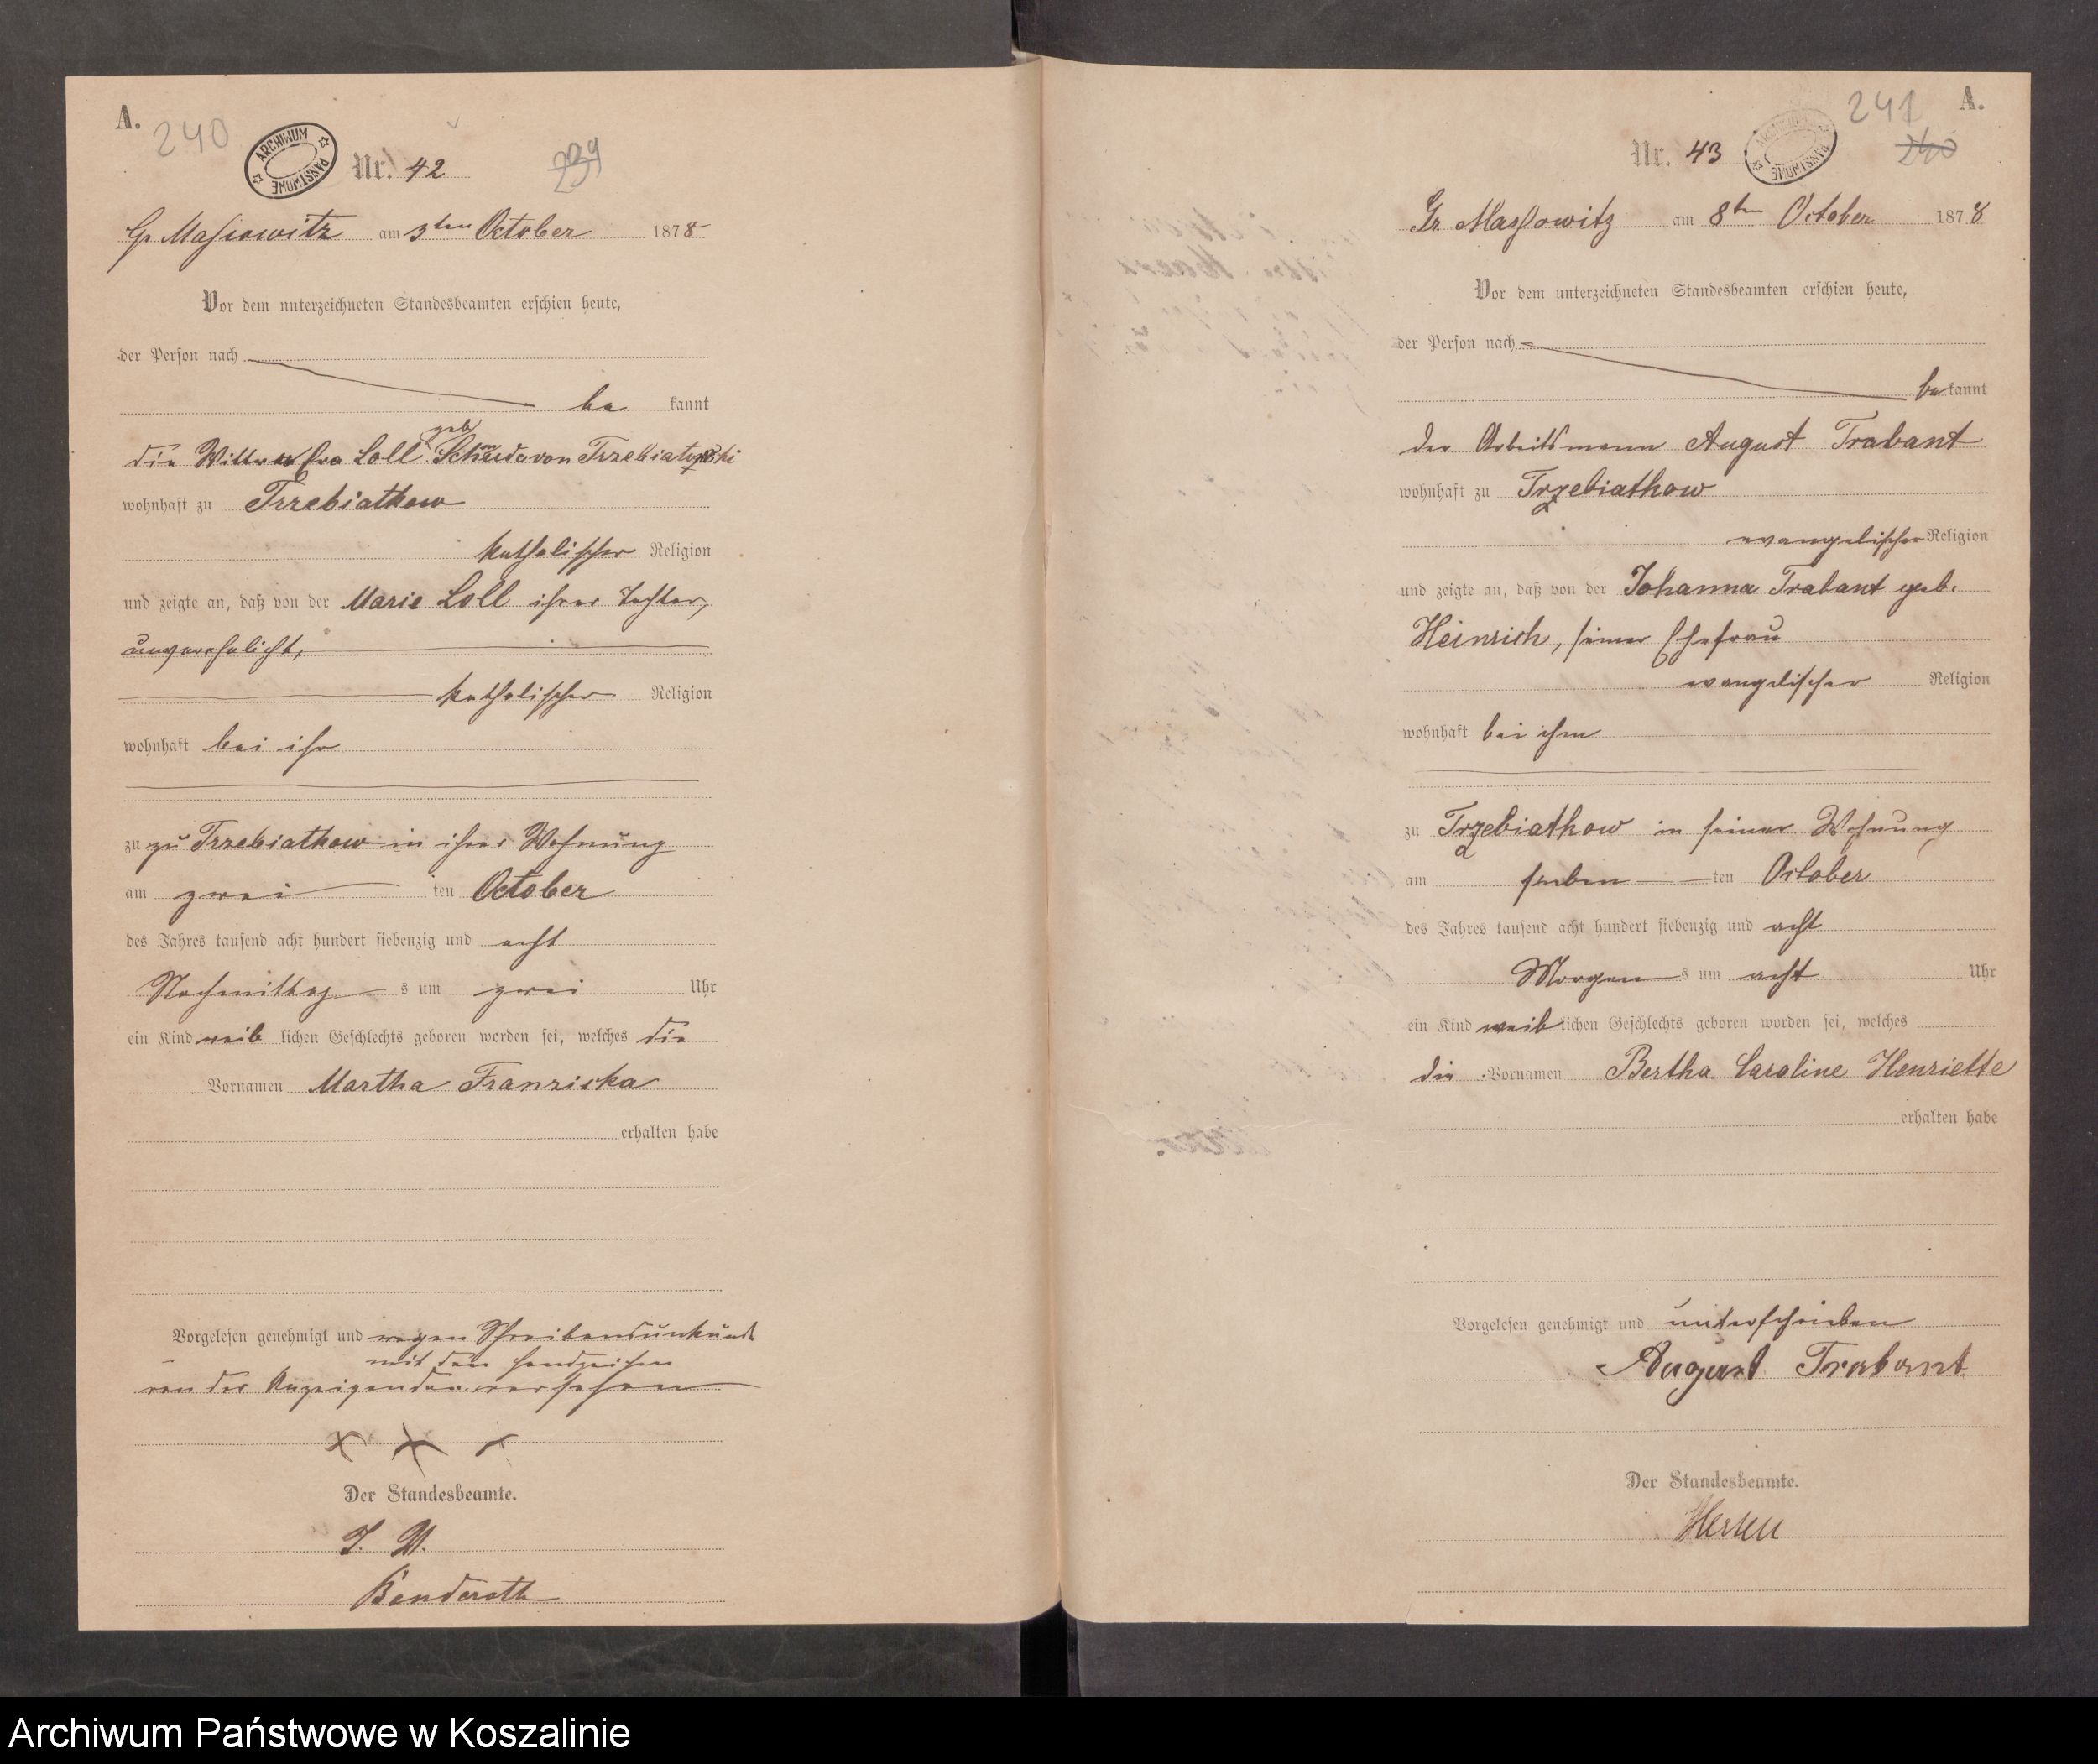 A.
240
ARCHIWUM PAŃSTWOWE
Nr. 42
239
Gr Massowitz am 3ten October 1878
Vor dem unterzeichneten Standesbeamten erschien heute,
der Person nach
be kannt
geb
die Wittwe Eva Loll von Trzebiatowski
wohnhaft zu Trzebiatkow
katholischer Religion
und zeigte an, daß von der Marie Loll ihrer Tochter,
unverehelicht,
katholischer Religion
wohnhaft bei ihr
zu zu Trzebiatkow in ihrer Wohnung
am zwei ten October
des Jahres tausend acht hundert siebenzig und acht
Nachmittag s um zwei Uhr
ein Kind weib lichen Geschlechts geboren worden sei, welches die
Vornamen Martha Franziska
erhalten habe
Vorgelesen genehmigt und wegen Schreibensunkunde
mit den Handzeichen
von der Anzeigenden versehen
x x x
Der Standesbeamte.
I. V.
Benderoth
241
A.
Nr. 43
ARCHIWUM PAŃSTWOWE
240
Gr. Massowitz am 8ten October 1878
Vor dem unterzeichneten Standesbeamten erschien heute,
der Person nach
be kannt
der Arbeitsmann August Trabant
wohnhaft zu Trzebiatkow
evangelischer Religion
und zeigte an, daß von der Johanna Trabant geb.
Heinrich, seiner Ehefrau
evangelischer Religion
wohnhaft bei ihm
zu Trzebiatkow in seiner Wohnung
am sieben ten October
des Jahres tausend acht hundert siebenzig und acht
Morgen s um acht Uhr
ein Kind weib lichen Geschlechts geboren worden sei, welches
die Vornamen Bertha Caroline Henriette
erhalten habe
Vorgelesen genehmigt und unterschrieben
August Trabant
Der Standesbeamte.
Archiwum Państwowe w Koszalinie